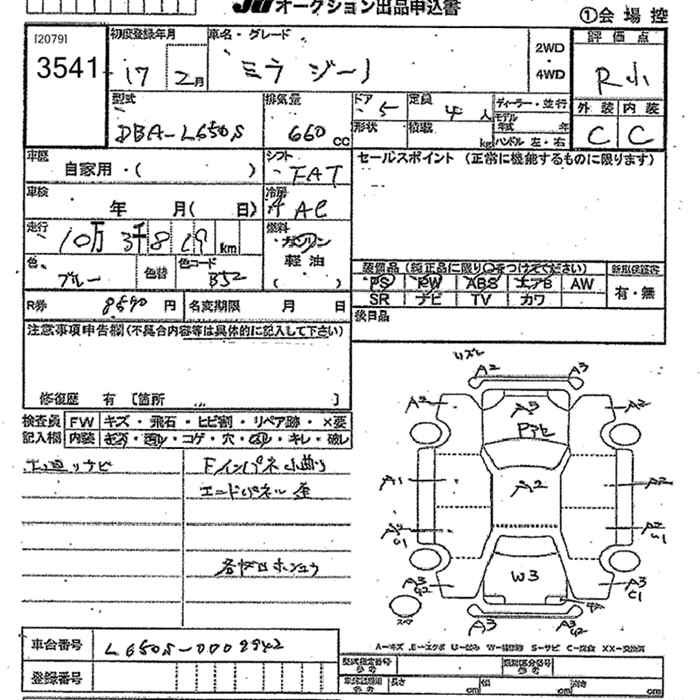 オークション出品申込書
①会場控
[2079]
3541
初度登録年月
17 2月
車名・グレード
ミラ ジーノ
2WD
・
4WD
評価点
R小
型式
DBA-L650S
排気量
660 cc
ドア
5
定員
4人
形状
積載
kg
ディーラー・並行
モデル
年式 年
ハンドル 左・右
外装 内装
C C
車歴
自家用・( )
シフト
FAT
セールスポイント (正常に機能するものに限ります)
車検
年 月( 日)
冷房
AC
走行
10万3千819km
燃料
ガソリン
軽油
( )
色
ブルー
色替
色コード
B52
装備品 (純正品に限り○をつけてください)
PS PW ABS エアB AW
SR ナビ TV カワ
新車保証書
有・無
R券
8590円
名変期限 月 日
後日品
注意事項申告欄(不具合内容等は具体的に記入して下さい)
修復歴 有 [箇所 ]
検査員
記入欄
FW キズ・飛石・ヒビ割・リペア跡・×要
内装 キズ・汚れ・コゲ・穴・・キレ・破レ
ナビ
Fインパネ
エンドパネル
A2 A3
A2 A3 A2
Pアセ
A1 A2 A2
A2 A2
C1
W3
A3 A3
C1
スペア
A3 A3
A-キズ E-エクボ U-凹み W-補修跡 S-サビ C-腐食 XX-交換済
車台番号
L650S-0009942
登録番号
型式指定番号
参考
類別区分番号
参考
長さ cm
幅 cm
高 cm